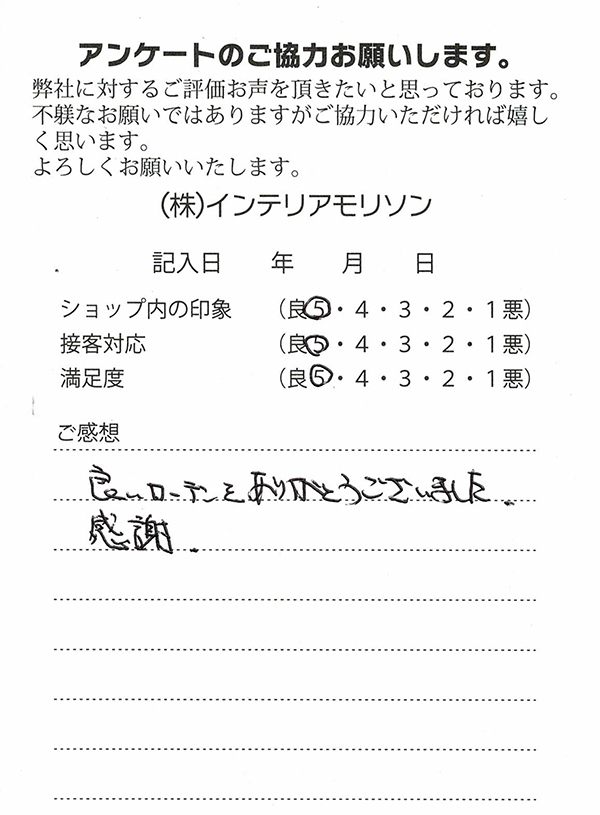 アンケートのご協力お願いします。
弊社に対するご評価お声を頂きたいと思っております。
不躾なお願いではありますがご協力いただければ嬉し
く思います。
よろしくお願いいたします。
(株)インテリアモリソン
記入日 年 月 日
ショップ内の印象 (良⑤・4・3・2・1悪)
接客対応 (良⑤・4・3・2・1悪)
満足度 (良⑤・4・3・2・1悪)
ご感想
良いカーテンをありがとうございました.
感謝.